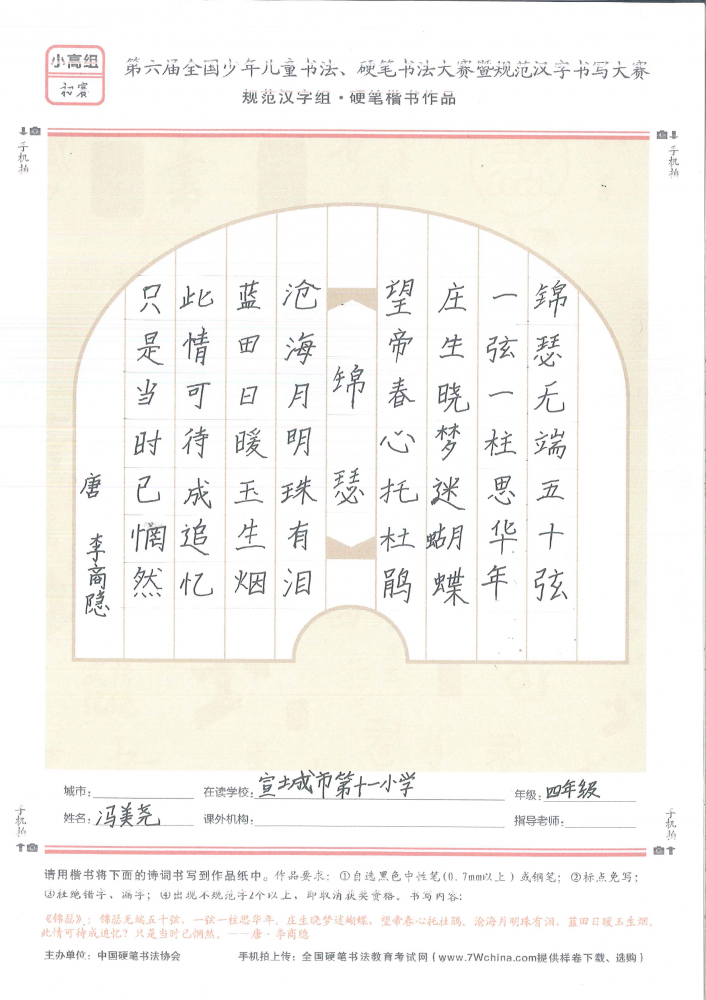 小高组
初赛
第六届全国少年儿童书法、硬笔书法大赛暨规范汉字书写大赛
规范汉字组·硬笔楷书作品
手机拍
手机拍
锦瑟无端五十弦
一弦一柱思华年
庄生晓梦迷蝴蝶
望帝春心托杜鹃
锦瑟
沧海月明珠有泪
蓝田日暖玉生烟
此情可待成追忆
只是当时已惘然
唐 李商隐
城市: 在读学校:宣城市第十一小学 年级:四年级
姓名:冯美尧 课外机构: 指导老师:
手机拍
手机拍
请用楷书将下面的诗词书写到作品纸中。作品要求:①自选黑色中性笔(0.7mm以上)或钢笔;②标点免写;
③杜绝错字、漏字;④出现不规范字2个以上,即取消获奖资格。书写内容:
《锦瑟》:锦瑟无端五十弦,一弦一柱思华年。庄生晓梦迷蝴蝶,望帝春心托杜鹃。沧海月明珠有泪,蓝田日暖玉生烟。
此情可待成追忆?只是当时已惘然。——唐·李商隐
主办单位:中国硬笔书法协会 手机拍上传:全国硬笔书法教育考试网(www.7Wchina.com提供样卷下载、选购)